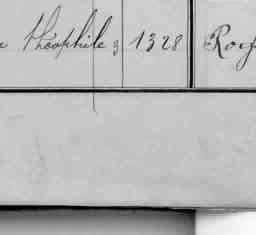 Théophile 3 1328